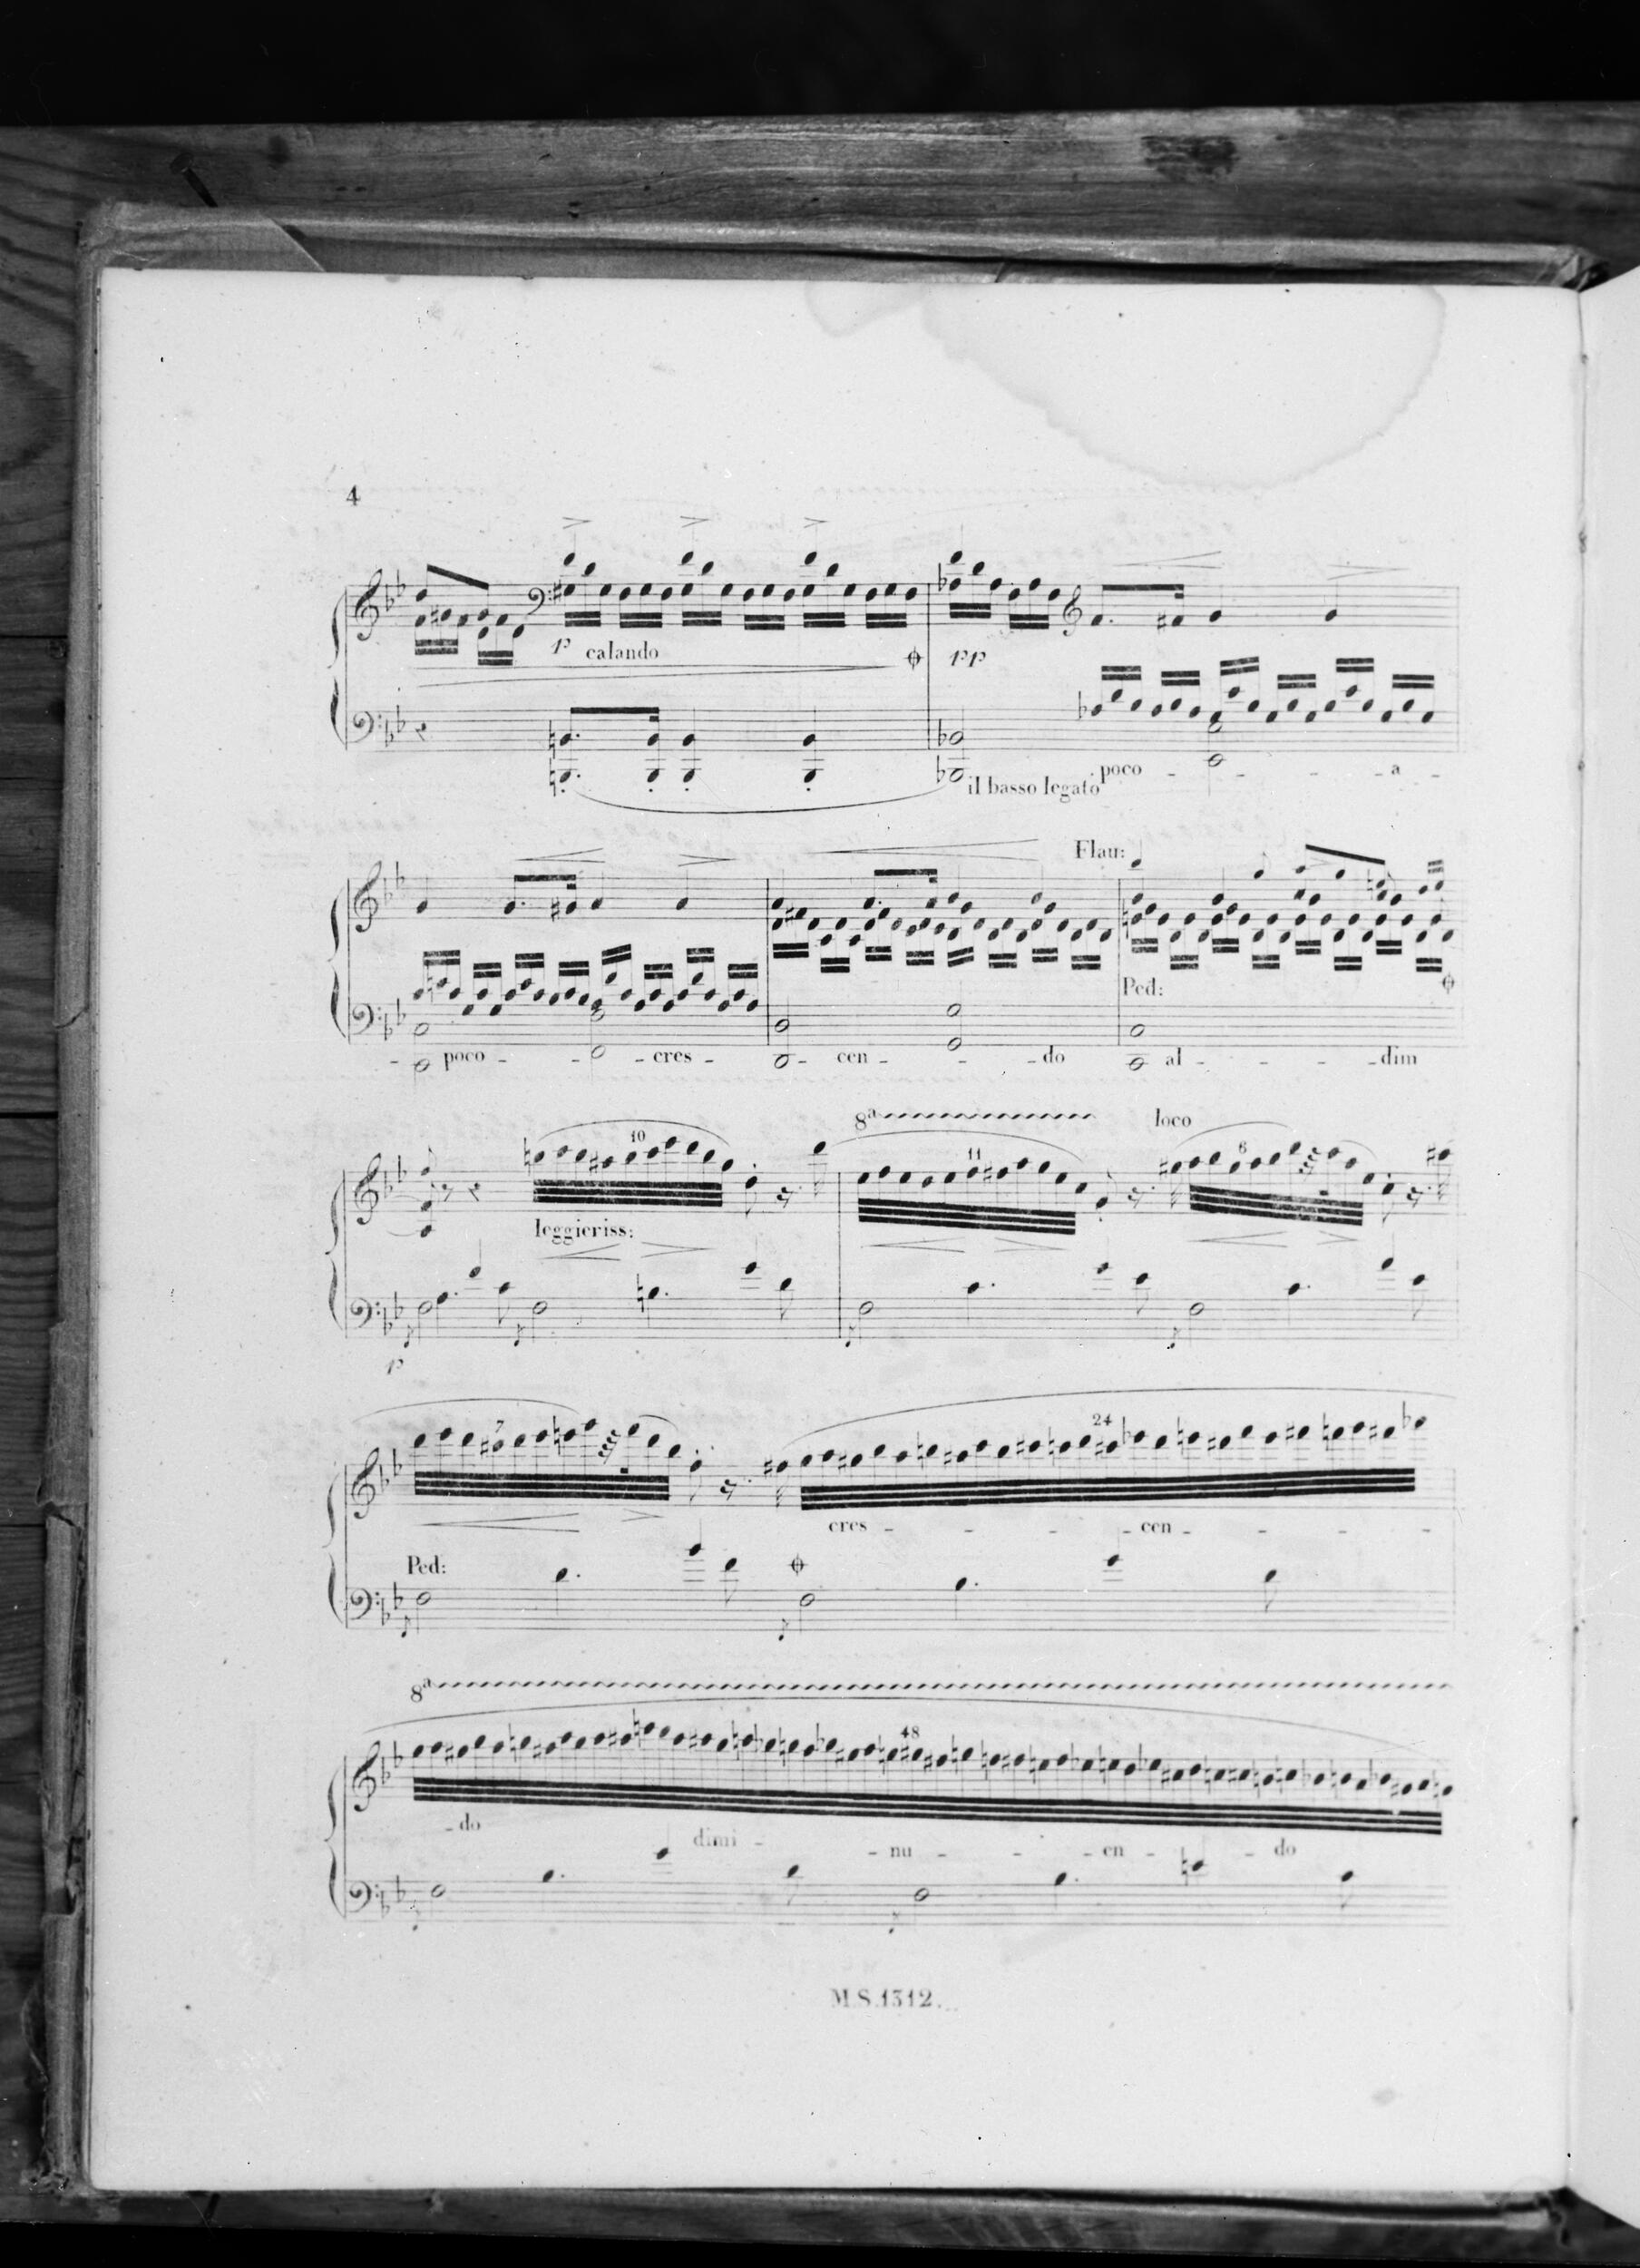 4
p calando
pp
il basso legato poco - - - - a -
Flau:
Ped:
- poco - - cres - - cen - - do al - - - dim
10
8ª
11
loco
6
leggieriss:
p
7
24
cres - - - cen - - - -
Ped:
8ª
48
- do dimi - - nu - - - en - - do
M.S.1312.